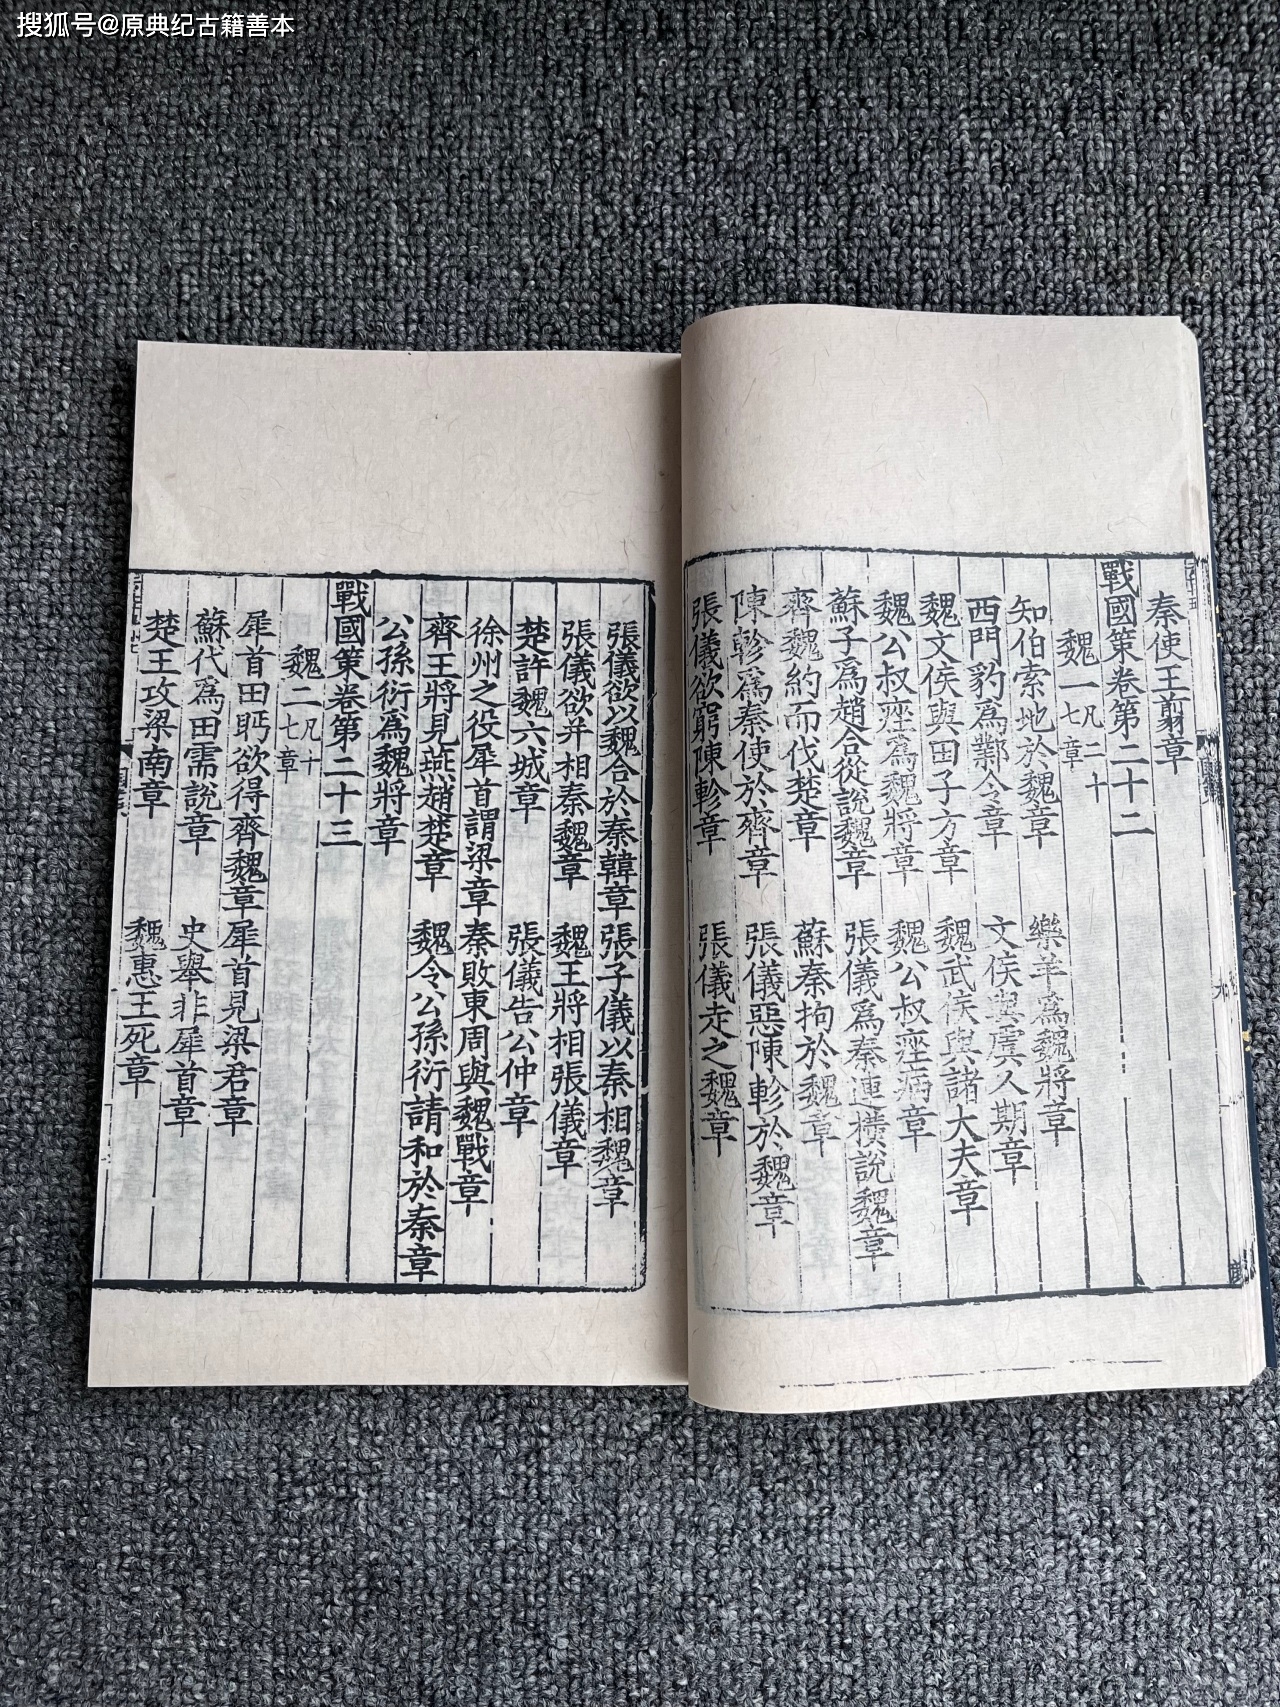 搜狐号@原典纪古籍善本
秦使王翦章
戰國策卷第二十二
魏一凡二十七章
知伯索地於魏章 樂羊爲魏將章
西門豹爲鄴令章 文侯與虞人期章
魏文侯與田子方章 魏武侯與諸大夫章
魏公叔痤爲魏將章 魏公叔痤病章
蘇子爲趙合從說魏章 張儀爲秦連橫說魏章
齊魏約而伐楚章 蘇秦拘於魏章
陳軫爲秦使於齊章 張儀惡陳軫於魏章
張儀欲窮陳軫章 張儀走之魏章
張儀欲以魏合於秦韓章 張子儀以秦相魏章
張儀欲并相秦魏章 魏王將相張儀章
楚許魏六城章 張儀告公仲章
徐州之役犀首謂梁章 秦敗東周與魏戰章
齊王將見燕趙楚章 魏令公孫衍請和於秦章
公孫衍爲魏將章
戰國策卷第二十三
魏二凡十七章
犀首田盼欲得齊魏章 犀首見梁君章
蘇代爲田需說章 史舉非犀首章
楚王攻梁南章 魏惠王死章